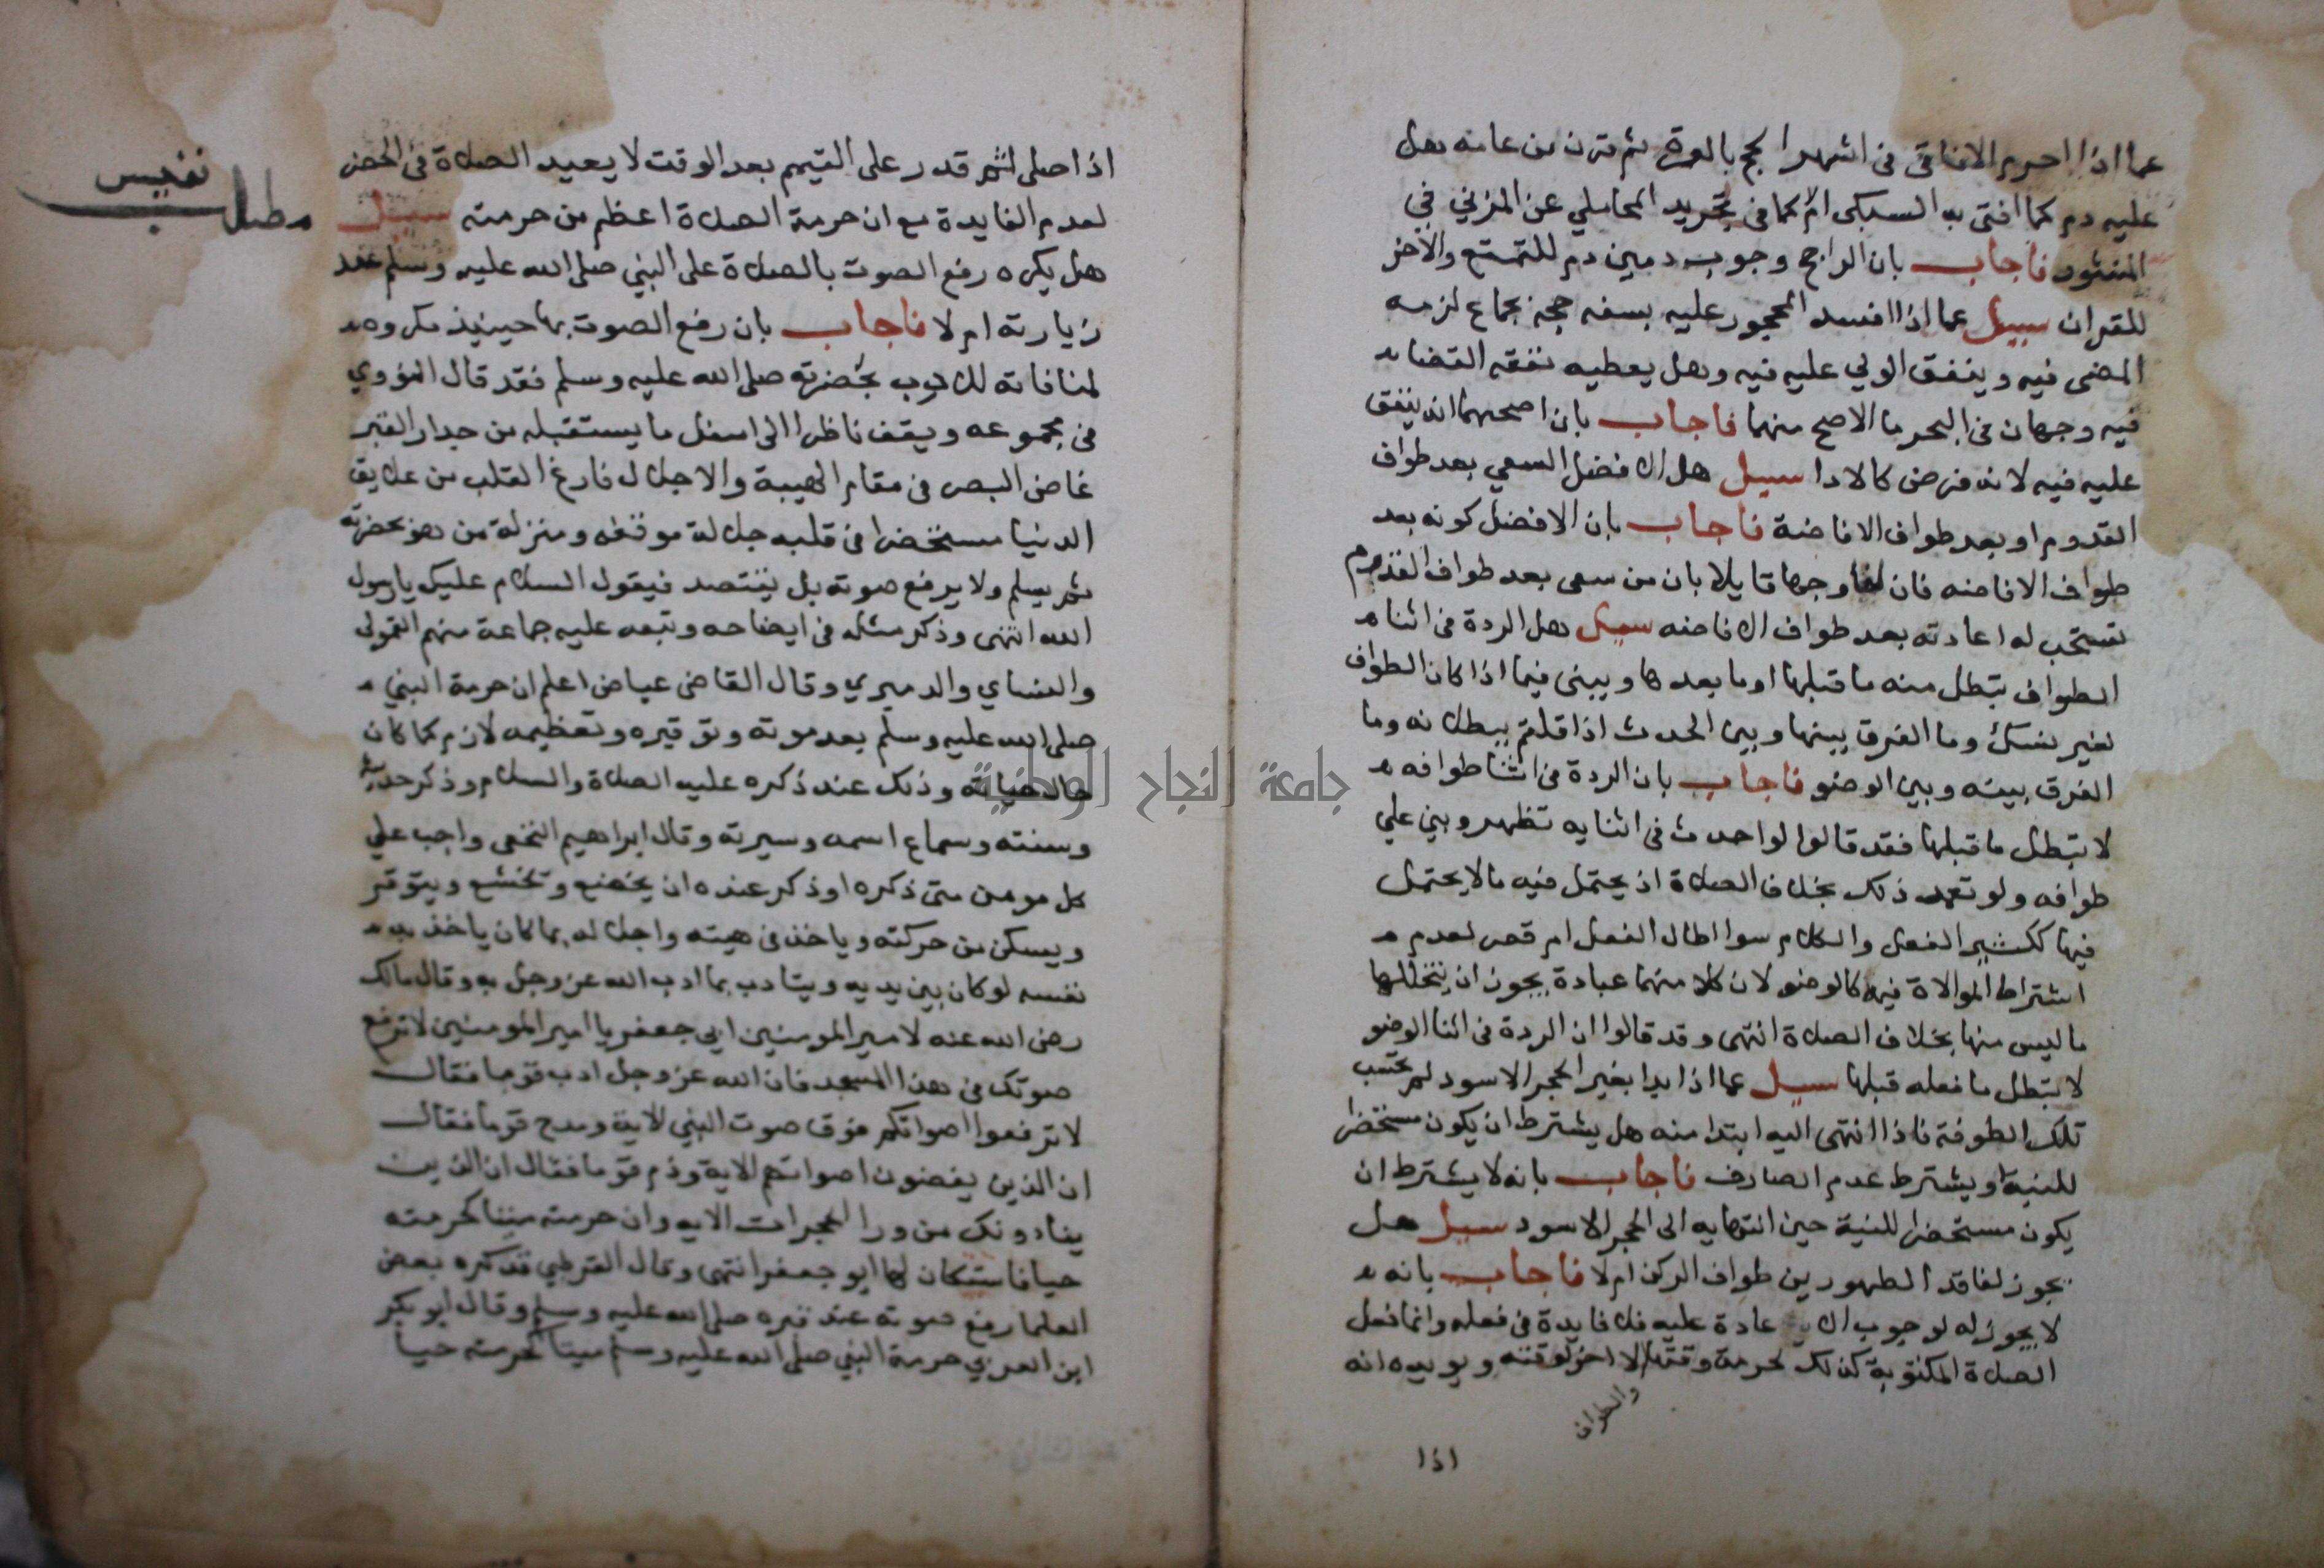 عما اذا احرم الافاقي في اشهر الحج بالعمرة ثم قرن من عامه هل
عليه دم كما افتى به السبكي ام كما في تجريد المحاملي عن المزني في
المنثور فاجاب بان الراجح وجوب دمين دم للتمتع والاخر
للقران سيل عما اذا افسد المحجور عليه بسفه حجه بجماع لزمه
المضي فيه وينفق الولي عليه فيه وهل يعطيه نفقه القضا
فيه وجهان في البحر ما الاصح منهما فاجاب بان اصحهما انه ينفق
عليه فيه لانه فرض كالادا سيل هل الافضل السعي بعد طواف
القدوم او بعد طواف الافاضة فاجاب بان الافضل كونه بعد
طواف الافاضه فان لنا وجها قايلا بان من سعى بعد طواف القدوم
تستحب له اعادته بعد طواف الافاضه سيل هل الردة في اثنا
الطواف تبطل منه ما قبلها او ما بعدها ويبنى فيما اذا كان الطواف
لغير نسك وما الفرق بينها وبين الحدث اذا قلتم ببطلانه وما
الفرق بينه وبين الوضو فاجاب بان الردة في اثنا طوافه
لا تبطل ما قبلها فقد قالوا لو احدث في اثنايه تطهر وبني علي
طوافه ولو تعمد ذلك بخلاف الصلاة اذ يحتمل فيه ما لا يحتمل
فيها ككثير الفعل والكلام سوا اطال الفصل ام قصر لعدم
اشتراط الموالاة فيه كالوضو لان كلا منهما عبادة يجوز ان يتخللها
ما ليس منها بخلاف الصلاة انتهى وقد قالوا ان الردة في اثنا الوضو
لا تبطل ما فعله قبلها سيل عما اذا بدا بغير الحجر الاسود لم تحتسب
تلك الطوفة فاذا انتهى اليه ابتدا منه هل يشترط ان يكون مستحضرا
للنية او يشترط عدم الصارف فاجاب بانه لا يشترط ان
يكون مستحضرا للنية حين انتهايه الى الحجر الاسود سيل هل
يجوز لفاقد الطهورين طواف الركن ام لا فاجاب بانه
لا يجوز له لوجوب الاعادة عليه فلا فايدة في فعله وانما فعل
الصلاة المكتوبة كذلك لحرمة وقتها لا اخر لوقته ويويده انه
والطواف
اذا
اذا صلى ثم قدر على التيمم بعد الوقت لا يعيد الصلاة في الحضر
لعدم الفايدة مع ان حرمة الصلاة اعظم من حرمته سيل
مطلب نفيس
هل يكره رفع الصوت بالصلاة على النبي صلى الله عليه وسلم عند
زيارته ام لا فاجاب بان رفع الصوت بها حينيذ مكروه
لمنافاته للادب بحضرته صلى الله عليه وسلم فقد قال النووي
في مجموعه ويقف ناظرا الى اسفل ما يستقبله من جدار القبر
غاض البصر في مقام الهيبة والاجلال فارغ القلب من علايق
الدنيا مستحضرا في قلبه جلالة موقفه ومنزلة من هو بحضرته
ثم يسلم ولا يرفع صوته بل يقتصد فيقول السلام عليك يا رسول
الله انتهى وذكر مثله في ايضاحه وتبعه عليه جماعة منهم القمولي
والنشاي والدميري وقال القاضي عياض اعلم ان حرمة النبي
صلى الله عليه وسلم بعد موته وتوقيره وتعظيمه لازم كما كان
حال حياته وذلك عند ذكره عليه الصلاة والسلام وذكر حديثه
وسنته وسماع اسمه وسيرته وقال ابراهيم النخعي واجب علي
كل مومن متى ذكره او ذكر عنده ان يخضع ويخشع ويتوقر
ويسكن من حركته وياخذ في هيبته واجلاله بما كان ياخذ به
نفسه لو كان بين يديه ويتادب بما ادب الله عز وجل به وقال مالك
رضي الله عنه لامير المومنين ابي جعفر يا امير المومنين لا ترفع
صوتك في هذا المسجد فان الله عز وجل ادب قوما فقال
لا ترفعوا اصواتكم فوق صوت النبي الاية ومدح قوما فقال
ان الذين يغضون اصواتهم الاية وذم قوما فقال ان الذين
ينادونك من ورا الحجرات الايه وان حرمته ميتا كحرمته
حيا فاستكان لها ابو جعفر انتهى وقال القرطبي قد كره بعض
العلما رفع صوته عند قبره صلى الله عليه وسلم وقال ابو بكر
ابن العربي حرمة النبي صلى الله عليه وسلم ميتا كحرمته حيا
جامعة النجاح الوطنية